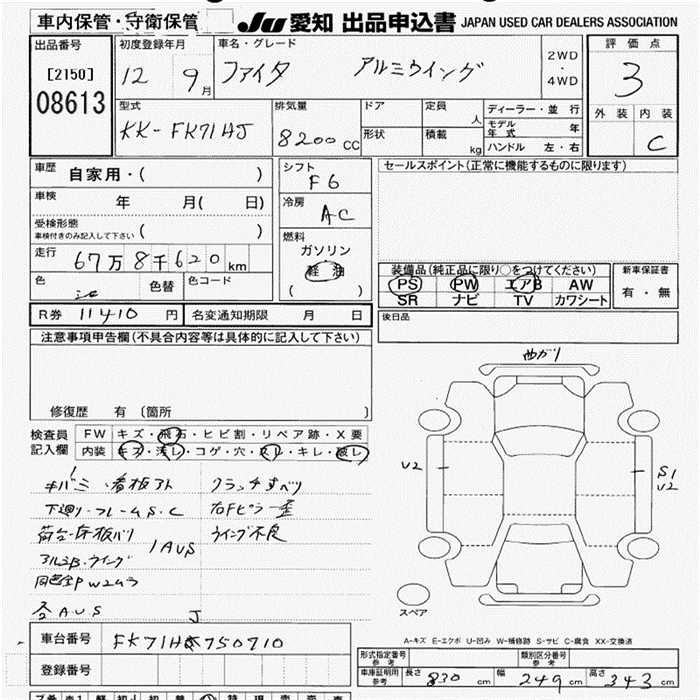 車内保管・守衛保管
JU 愛知 出品申込書 JAPAN USED CAR DEALERS ASSOCIATION
出品番号
[2150]
08613
初度登録年月
12 9月
車名・グレード
ファイタ アルミウイング
2WD
・
4WD
評価点
3
外装 内装
C
型式
KK-FK71HJ
排気量
8200CC
ドア
形状
定員
人
積載
kg
ディーラー・並行
モデル年式 年
ハンドル 左・右
車歴
自家用・( )
車検 年 月( 日)
受検形態
車検付きのみ記入して下さい ( )
走行
67万8千620km
色 色替
色コード
シフト
F6
冷房
AC
燃料
ガソリン
軽油
( )
セールスポイント(正常に機能するものに限ります)
装備品(純正品に限り○をつけてください)
PS PW エアB AW
SR ナビ TV カワシート
新車保証書
有・無
R券 11410 円
名変通知期限 月 日
後日品
注意事項申告欄(不具合内容等は具体的に記入して下さい)
修復歴 有 (箇所 )
検査員
記入欄
FW キズ・飛石・ヒビ割・リペア跡・X要
内装 キズ・汚レ・コゲ・穴・スレ・キレ・破レ
キバミ・看板アト クラッチすべリ
下廻リ・フレームS・C 右Fピラー歪
荷台床板バリ ウイング不良
アルミB・ウイング
1AUS
各AUS
曲がり
U2
S1
U2
スペア
A-キズ E-エクボ U-凹み W-補修跡 S-サビ C-腐食 XX-交換済
車台番号 FK71HJ750710
登録番号
形式指定番号
参考
類別区分番号
参考
車庫証明用
参考
長さ 830 cm 幅 249 cm 高さ 343 cm